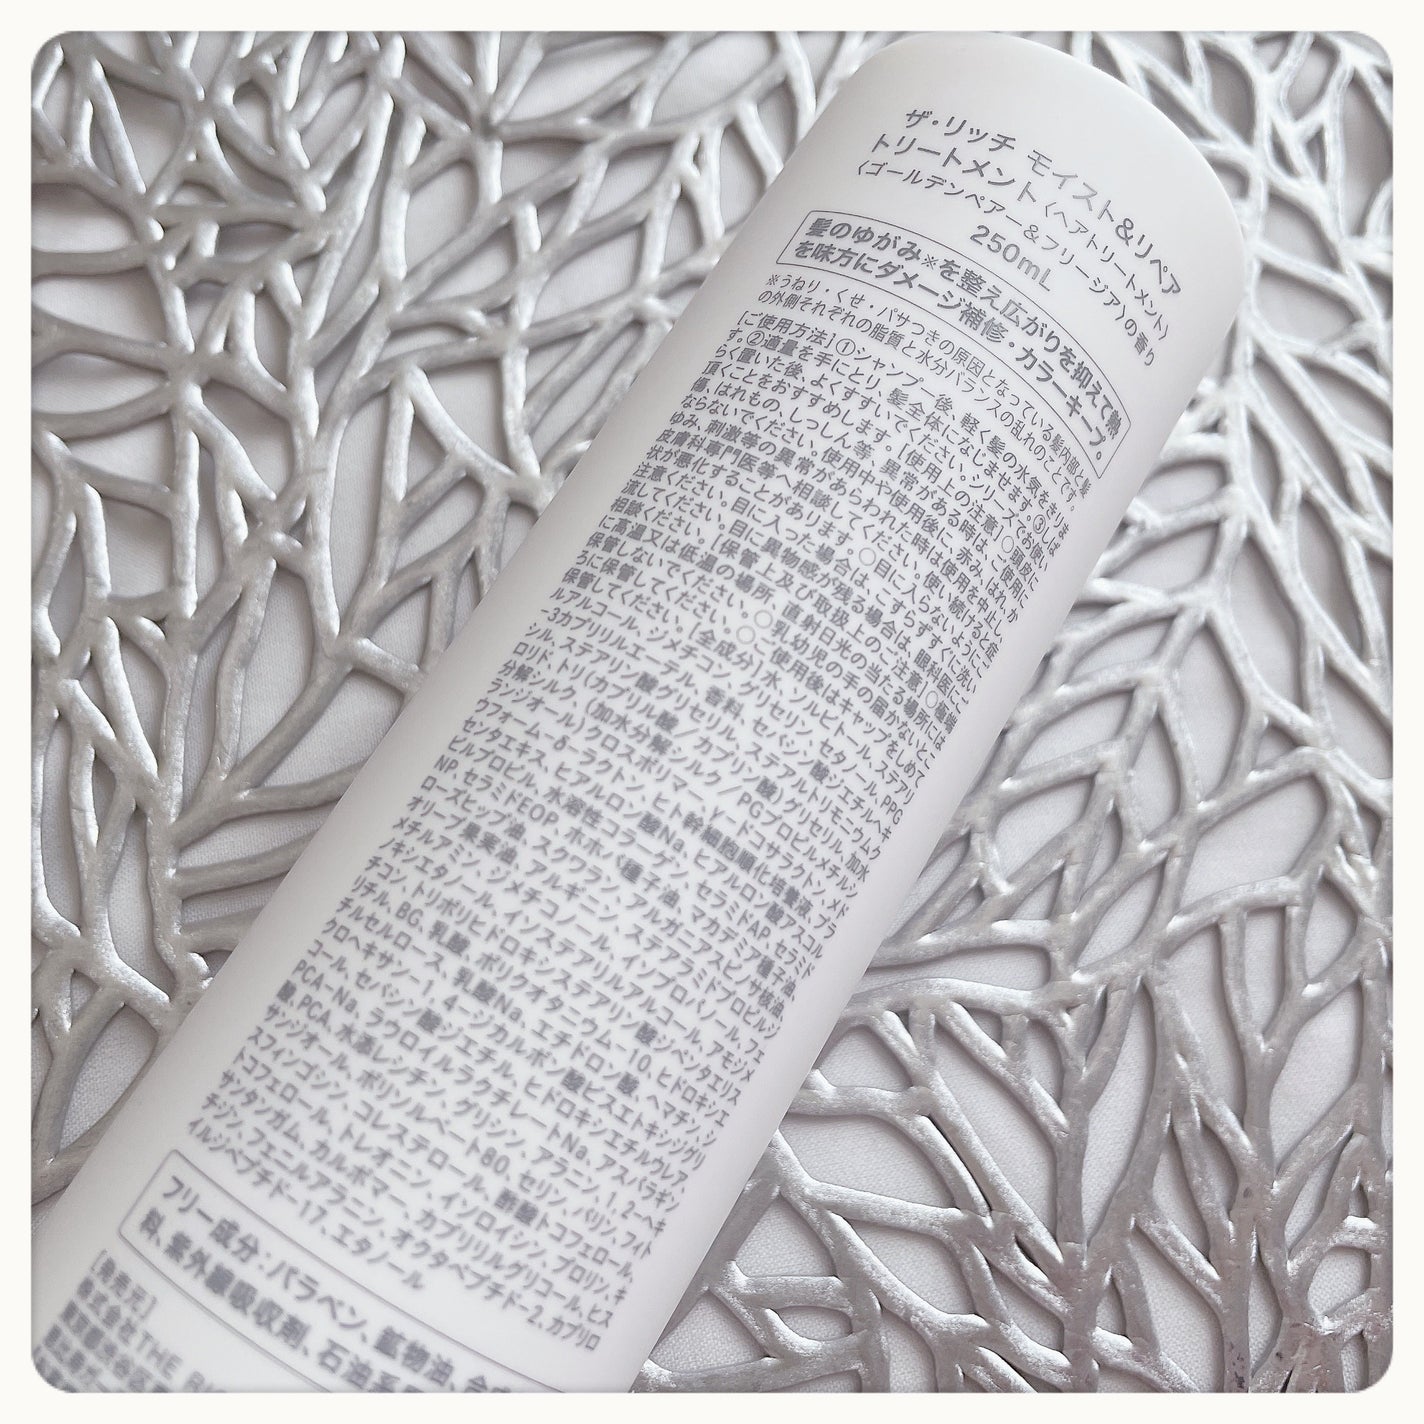 ザ・リッチ モイスト&リペア
トリートメント〈ヘアトリートメント〉
〈ゴールデンペアー&フリージア〉の香り
250mL
髪のゆがみ※を整え広がりを抑えて熱
を味方にダメージ補修・カラーキープ。
※うねり・くせ・パサつきの原因となっている髪内部と髪
の外側それぞれの脂質と水分バランスの乱れのことです。
[ご使用方法]①シャンプー後、軽く髪の水気をきりま
す。②適量を手にとり、髪全体になじませます。③しば
らく置いた後、よくすすいでください。シリーズでお使い
頂くことをおすすめします。[使用上の注意]○頭皮に
傷、はれもの、しっしん等、異常がある時は、使用に
ならないでください。使用中や使用後に、赤み、はれ、か
ゆみ、刺激等の異常があらわれた時は使用を中止し、
皮膚科専門医等へ相談してください。使い続けると症
状が悪化することがあります。○目に入らないようにご
注意ください。目に入った場合は、こすらずすぐに洗い
流してください。目に異物感が残る場合は、眼科医にご
相談ください。[保管上及び取扱上のご注意]○極端
に高温又は低温の場所、直射日光の当たる場所には
保管しないでください。○乳幼児の手の届かないとこ
ろに保管してください。○ご使用後はキャップをしめて
保管してください。[全成分]水、ソルビトール、ステアリ
ルアルコール、ジメチコン、グリセリン、セタノール、PPG
-3カプリリルエーテル、香料、セバシン酸ジエチルヘキ
シル、ステアリン酸グリセリル、ステアルトリモニウムク
ロリド、トリ(カプリル酸/カプリン酸)グリセリル、加水
分解シルク、(加水分解シルク/PGプロピルメチルシ
ランジオール)クロスポリマー、γ-ドコサラクトン、メド
ウフォーム-δ-ラクトン、ヒト幹細胞順化培養液、プラ
センタエキス、ヒアルロン酸Na、ヒアルロン酸アスコル
ビルプロピル、水溶性コラーゲン、セラミドAP、セラミド
NP、セラミドEOP、ホホバ種子油、マカデミア種子油、
ローズヒップ油、スクワラン、アルガニアスピノサ核油、
オリーブ果実油、アルギニン、ステアラミドプロピルジ
メチルアミン、ジメチコノール、イソプロパノール、フェ
ノキシエタノール、イソステアリルアルコール、アモジメ
チコン、トリポリヒドロキシステアリン酸ジペンタエリス
リチル、BG、乳酸、ポリクオタニウム-10、ヒドロキシエ
チルセルロース、乳酸Na、エチドロン酸、ヘマチン、シ
クロヘキサン-1,4-ジカルボン酸ビスエトキシジグリ
コール、セバシン酸ジエチル、ヒドロキシエチルウレア、
PCA-Na、ラウロイルラクチレートNa、アスパラギン
酸、PCA、水添レシチン、グリシン、アラニン、1,2-ヘキ
サンジオール、ポリソルベート80、セリン、バリン、フィト
スフィンゴシン、コレステロール、酢酸トコフェロール、
トコフェロール、トレオニン、イソロイシン、プロリン、キ
サンタンガム、カルボマー、カプリリルグリコール、ヒス
チジン、フェニルアラニン、オクタペプチド-2、カプリロ
イルジペプチド-17、エタノール
フリー成分:パラベン、鉱物油、合成
料、紫外線吸収剤、石油系
[発売元]
株式会社THE